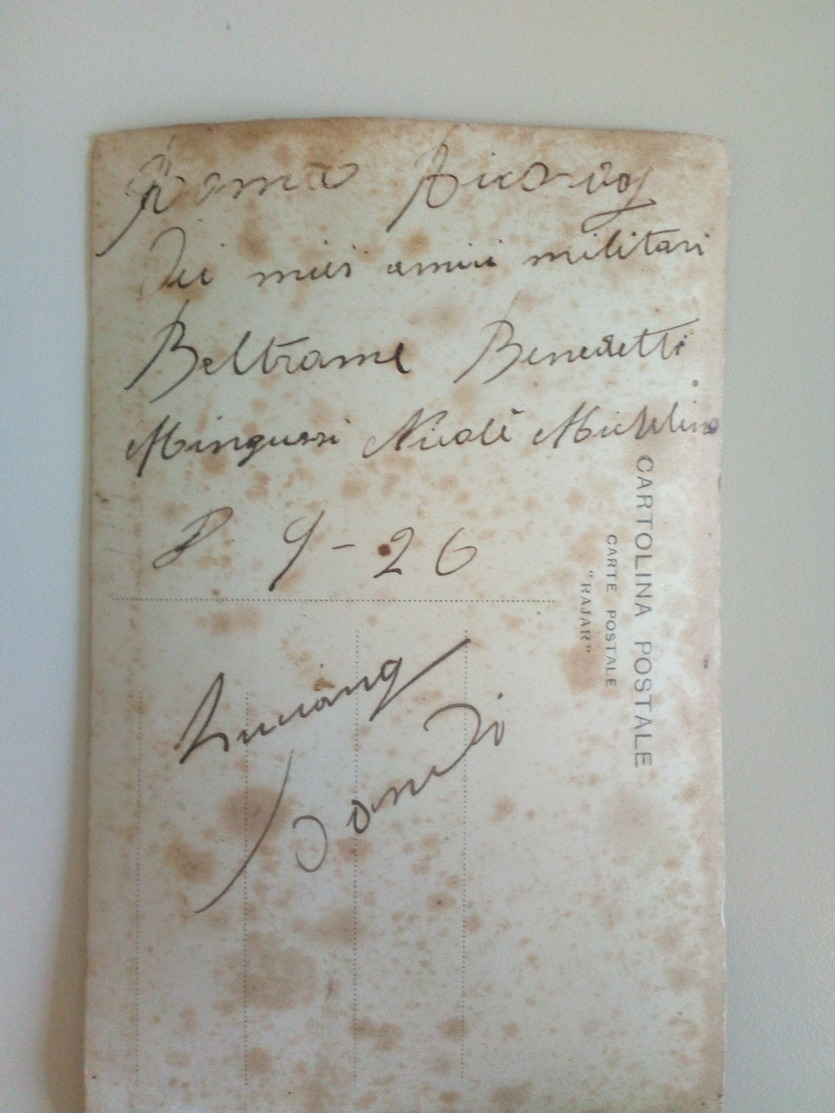 Roma
Dei miei amici militari
Beltrame Benedetti
Minguzzi Nicolè Michelino
9-26
Luciano
CARTOLINA POSTALE
CARTE POSTALE
"RAJAR"